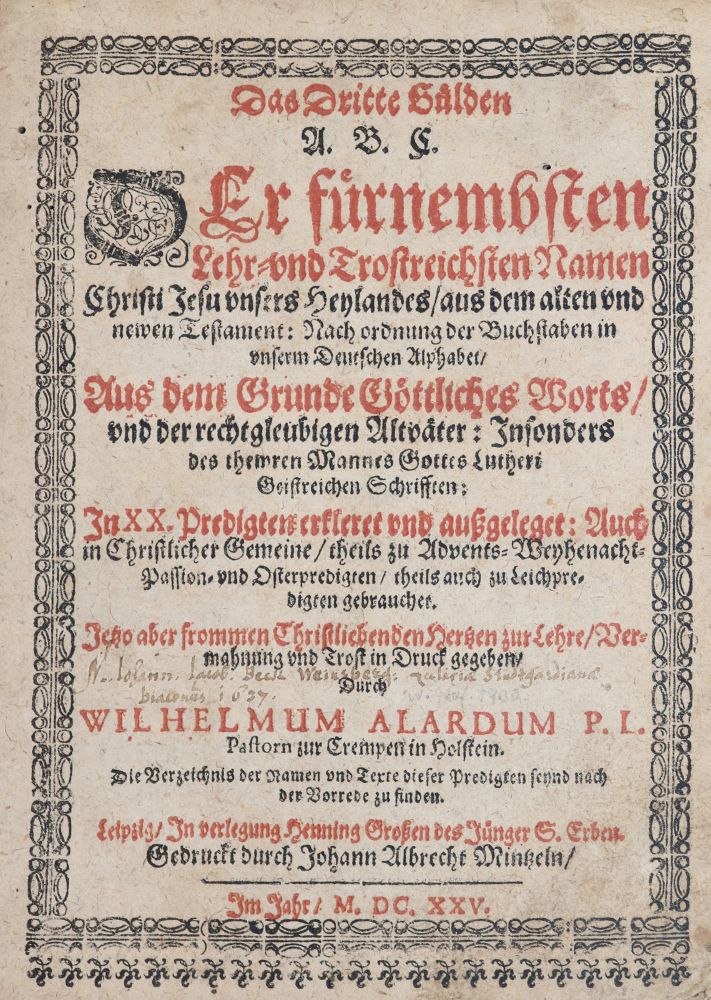 Das Dritte Gülden
A. B. C.
DEr fürnembsten
Lehr-vnd Trostreichsten Namen
Christi Jesu vnsers Heylandes/aus dem alten vnd
newen Testament: Nach ordnung der Buchstaben in
vnserm Deutschen Alphabet/
Aus dem Grunde Göttliches Worts/
vnd der rechtgleubigen Altväter: Insonders
des thewren Mannes Gottes Lutheri
Geistreichen Schrifften:
In XX. Predigten erkleret vnd außgeleget: Auch
in Christlicher Gemeine/theils zu Advents-Weyhenacht-
Passion-vnd Osterpredigten/theils auch zu Leichpre-
digten gebrauchet.
Jetzo aber frommen Christliebenden Hertzen zur Lehre/Ver-
mahnung vnd Trost in Druck gegeben/
M. Iohann. Iacob. Beck Weinsberg:
Diaconus 1627.
Durch
WILHELMUM ALARDUM P. L.
Pastorn zur Crempen in Holstein.
Die Verzeichnis der Namen vnd Texte dieser Predigten seynd nach
der Vorrede zu finden.
Leipzig/In verlegung Henning Großen des Jünger S. Erben.
Gedruckt durch Johann Albrecht Mintzeln/
Im Jahr/ M. DC. XXV.